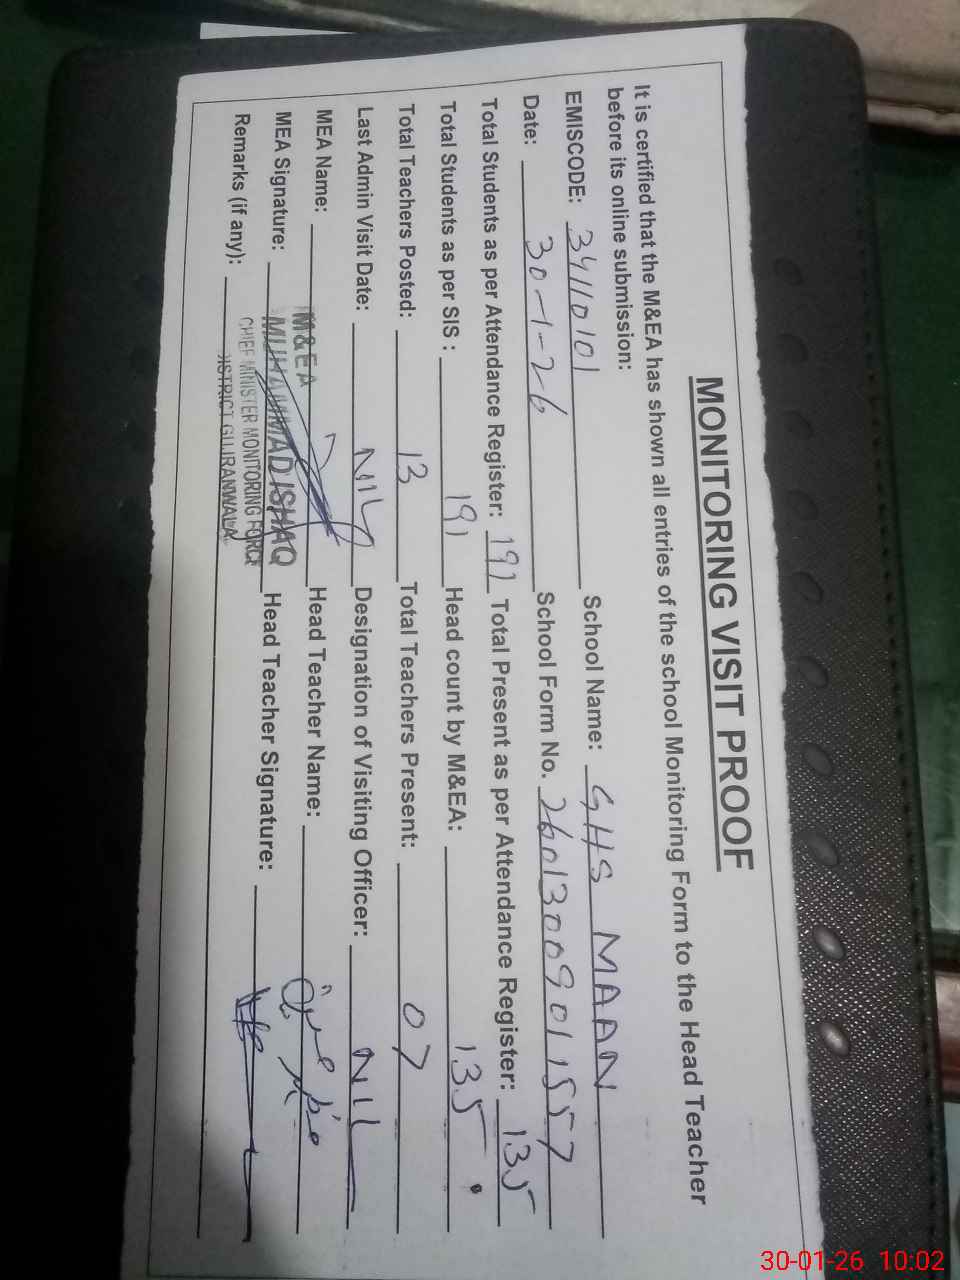 MONITORING VISIT PROOF
It is certified that the M&EA has shown all entries of the school Monitoring Form to the Head Teacher
before its online submission:
EMISCODE: 34110101 School Name: GHS MAAN
Date: 30-1-26 School Form No. 2601300901157
Total Students as per Attendance Register: 191 Total Present as per Attendance Register: 135
Total Students as per SIS : 191 Head count by M&EA: 135
Total Teachers Posted: 13 Total Teachers Present: 07
Last Admin Visit Date: NIL Designation of Visiting Officer: NIL
MEA Name: M&EA Head Teacher Name:
MEA Signature: MUHAMMAD ISHAQ Head Teacher Signature:
CHIEF MINISTER MONITORING FORCE
Remarks (if any): DISTRICT GUJRANWALA
30-01-26 10:02